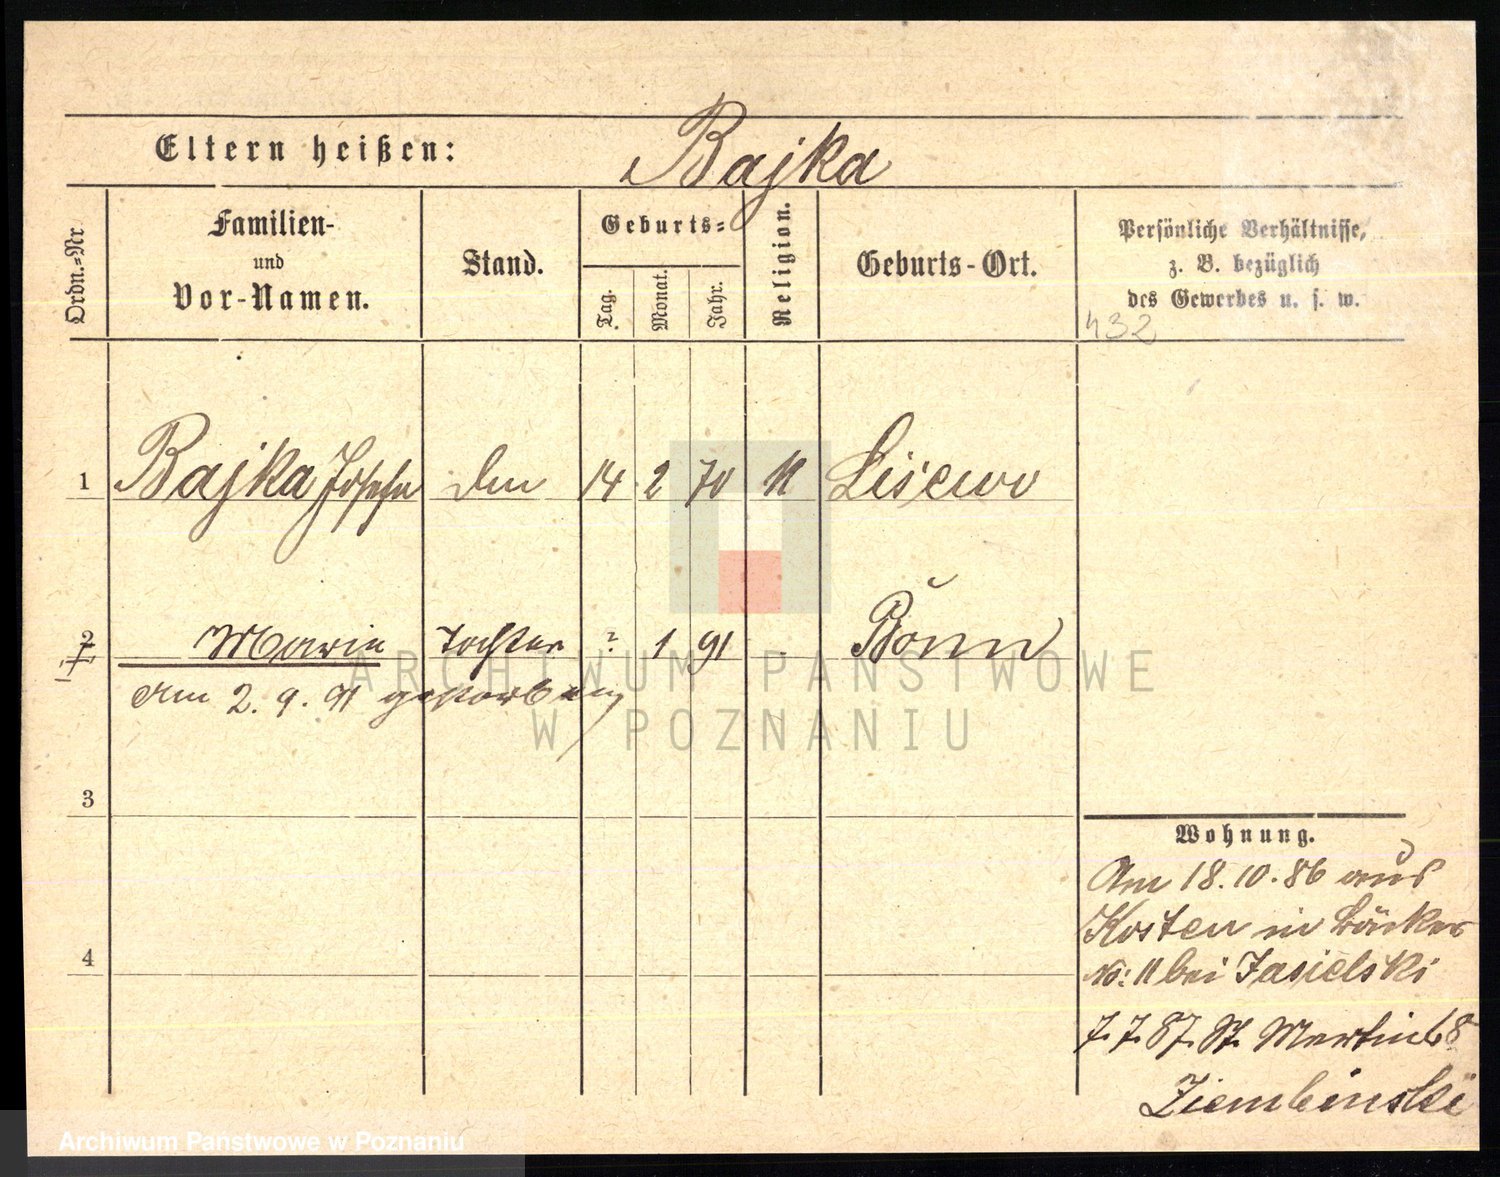 Eltern heißen: Bajka
Ordn.=Nr
Familien-
und
Vor-Namen.
Stand.
Geburts=
Tag.
Monat.
Jahr.
Religion.
Geburts-Ort.
Persönliche Verhältnisse,
z. B. bezüglich
des Gewerbes u. s. w.
432
1 Bajka 14 2 70 Lisewo
2 Marie Tochter ? 1 91 Bonn
Am 2. 9. 91 gestorben
3
4
Wohnung.
Am 18.10.86 aus
Kosten in Bäcker
No: 11 bei Jasielski
7.7.87. St. Martin 68
Ziembinski
ARCHIWUM PAŃSTWOWE
W POZNANIU
Archiwum Państwowe w Poznaniu